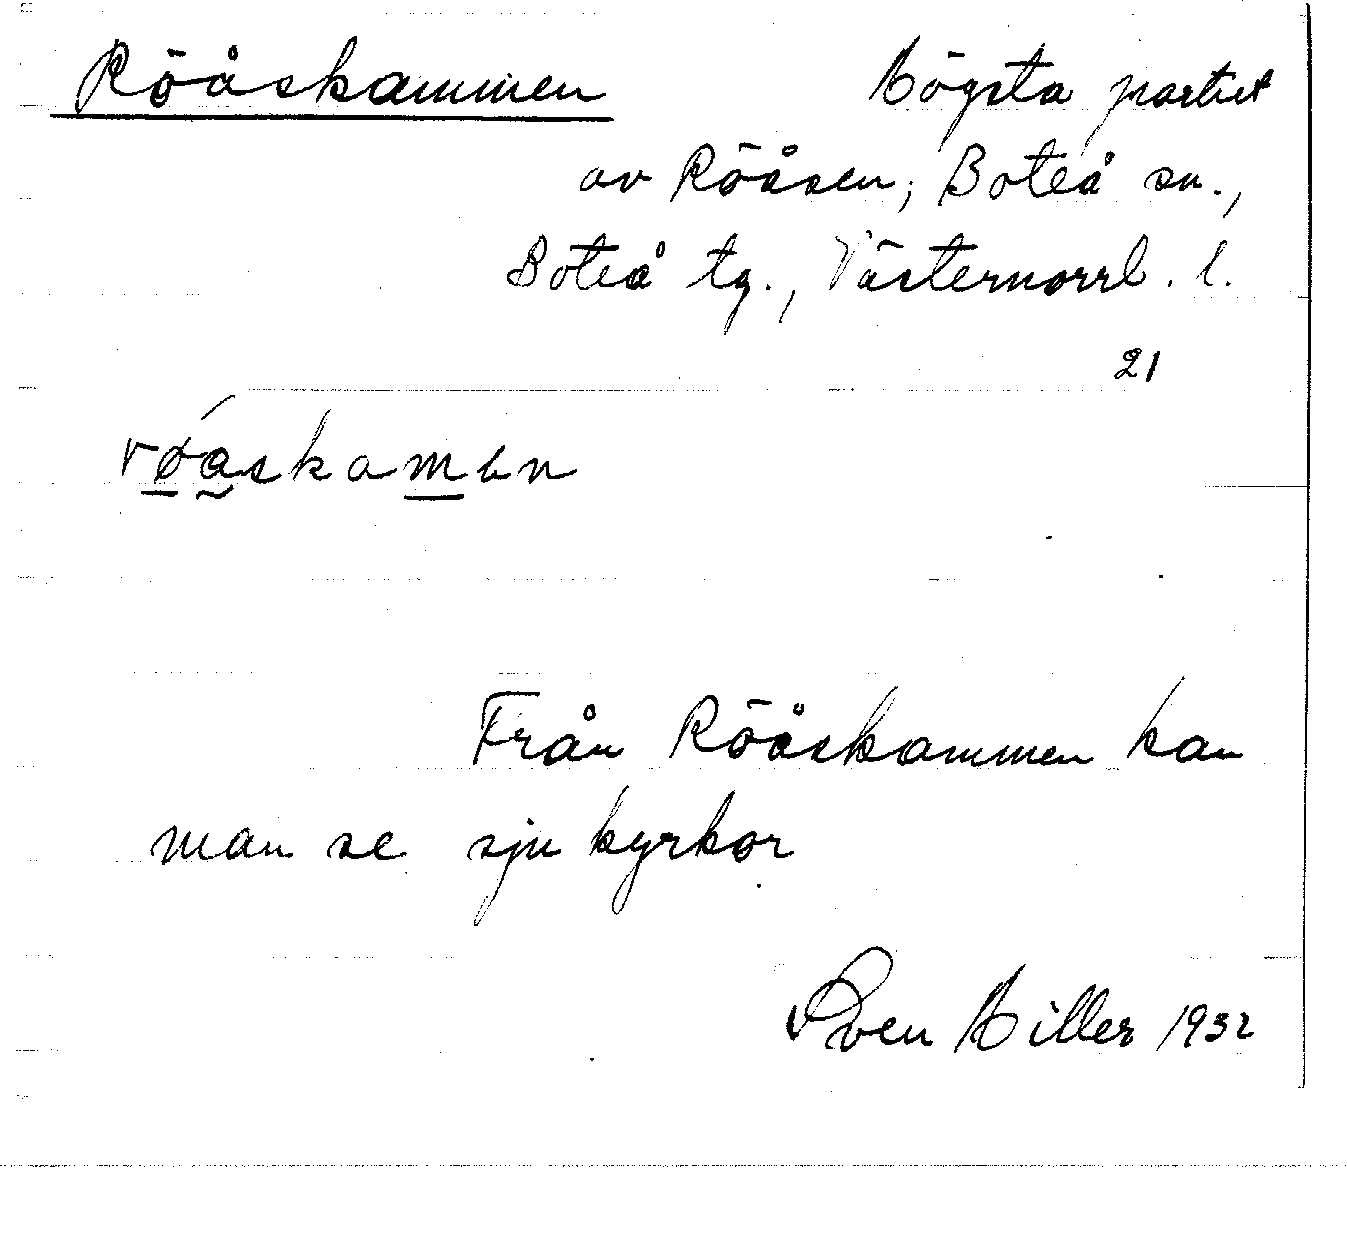 Rööåskammen
Högsta partiet
av Röåsen, Boteå sn.,
Boteå tg., Västernorrl. l.
21
röåskamen
Från Röåskammen kan
man se sju kyrkor
Sven Hiller 1932